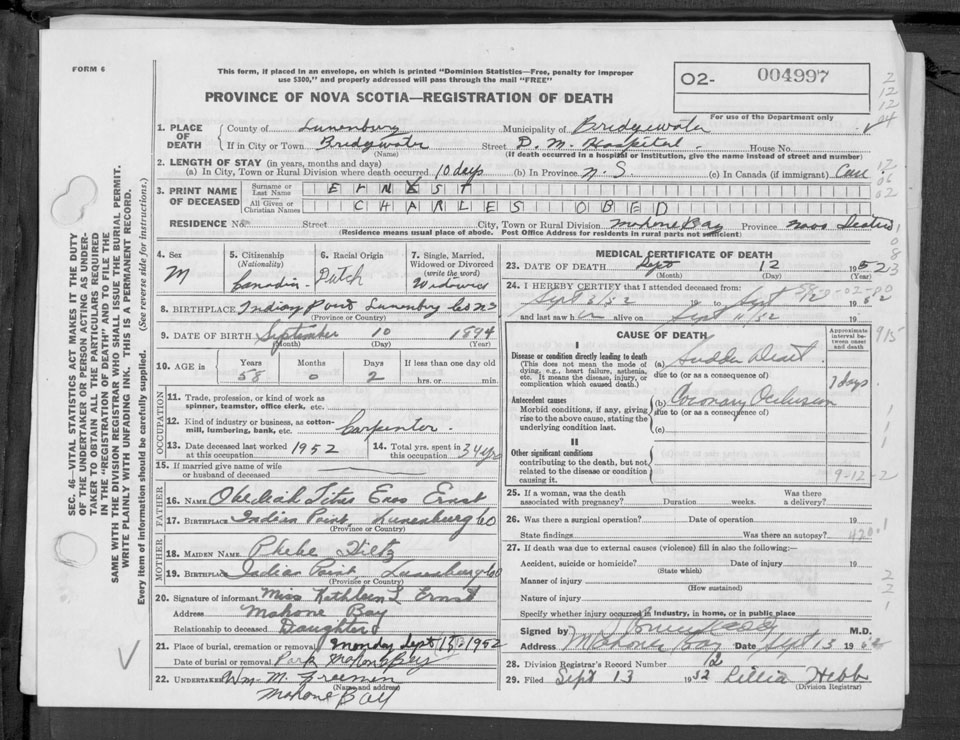 FORM 6
This form, if placed in an envelope, on which is printed "Dominion Statistics—Free, penalty for improper
use $300," and properly addressed will pass through the mail "FREE"
O2- 004997
For use of the Department only
PROVINCE OF NOVA SCOTIA—REGISTRATION OF DEATH
SEC. 46—VITAL STATISTICS ACT MAKES IT THE DUTY
OF THE UNDERTAKER OR PERSON ACTING AS UNDER-
TAKER TO OBTAIN ALL THE PARTICULARS REQUIRED
IN THE "REGISTRATION OF DEATH" AND TO FILE THE
SAME WITH THE DIVISION REGISTRAR WHO SHALL ISSUE THE BURIAL PERMIT.
WRITE PLAINLY WITH UNFADING INK. THIS IS A PERMANENT RECORD.
Every item of information should be carefully supplied. (See reverse side for instructions.)
1. PLACE OF DEATH
County of Lunenburg Municipality of Bridgewater
If in City or Town Bridgewater Street D. M. Hospital. House No.
(Name) (If death occurred in a hospital or institution, give the name instead of street and number)
2. LENGTH OF STAY (in years, months and days)
(a) In City, Town or Rural Division where death occurred 10 days (b) In Province N. S. (c) In Canada (if immigrant)
3. PRINT NAME OF DECEASED
Surname or Last Name ERNST
All Given or Christian Names CHARLES OBED
RESIDENCE No. Street City, Town or Rural Division Mahone Bay Province Nova Scotia
(Residence means usual place of abode. Post Office Address for residents in rural parts not sufficient)
4. Sex M
5. Citizenship (Nationality) Canadian
6. Racial Origin Dutch
7. Single, Married, Widowed or Divorced (write the word) Widower
8. BIRTHPLACE Indian Point Lunenburg Co NS
(Province or Country)
9. DATE OF BIRTH September 10 1894
(Month) (Day) (Year)
10. AGE in Years 58 Months 0 Days 2 If less than one day old hrs. or min.
OCCUPATION
11. Trade, profession, or kind of work as
spinner, teamster, office clerk, etc.
12. Kind of industry or business, as cotton-
mill, lumbering, bank, etc. Carpenter.
13. Date deceased last worked at this occupation 1952
14. Total yrs. spent in this occupation 34 yrs
15. If married give name of wife
or husband of deceased
FATHER
16. NAME Obediah Titus Enos Ernst
17. BIRTHPLACE Indian Point Lunenburg Co
(Province or Country)
MOTHER
18. MAIDEN NAME Phebe
19. BIRTHPLACE Indian Point Lunenburg Co
(Province or Country)
20. Signature of informant Miss Kathleen L Ernst
Address Mahone Bay
Relationship to deceased Daughter
21. Place of burial, cremation or removal Monday Sept 15 1952
Date of burial or removal Park Mahone Bay
22. UNDERTAKER Wm. M. Freeman
(Name and address)
Mahone Bay
MEDICAL CERTIFICATE OF DEATH
23. DATE OF DEATH Sept 12 1952
(Month) (Day) (Year)
24. I HEREBY CERTIFY that I attended deceased from:
Sept 3/52 19 to Sept 12 1952
and last saw him alive on Sept 11/52 19
CAUSE OF DEATH
Approximate interval between onset and death
I
Disease or condition directly leading to death
(This does not mean the mode of
dying, e.g., heart failure, asthenia,
etc. It means the disease, injury, or
complication which caused death.)
(a) Sudden
due to (or as a consequence of)
Antecedent causes
Morbid conditions, if any, giving
rise to the above cause, stating the
underlying condition last.
(b) Coronary Occlusion 7 days.
due to (or as a consequence of)
(c)
II
Other significant conditions
contributing to the death, but not
related to the disease or condition
causing it.
9-12-2
25. If a woman, was the death
associated with pregnancy? Duration weeks. Was there a delivery?
26. Was there a surgical operation? Date of operation 19
State findings Was there an autopsy?
27. If death was due to external causes (violence) fill in also the following:—
Accident, suicide or homicide? Date of injury 19
(State which)
Manner of injury
(How sustained)
Nature of injury
Specify whether injury occurred in industry, in home, or in public place
Signed by M.D.
Address Mahone Bay Date Sept 13 1952
28. Division Registrar's Record Number 12
29. Filed Sept 13 1952 Lillia Hebb
(Division Registrar)